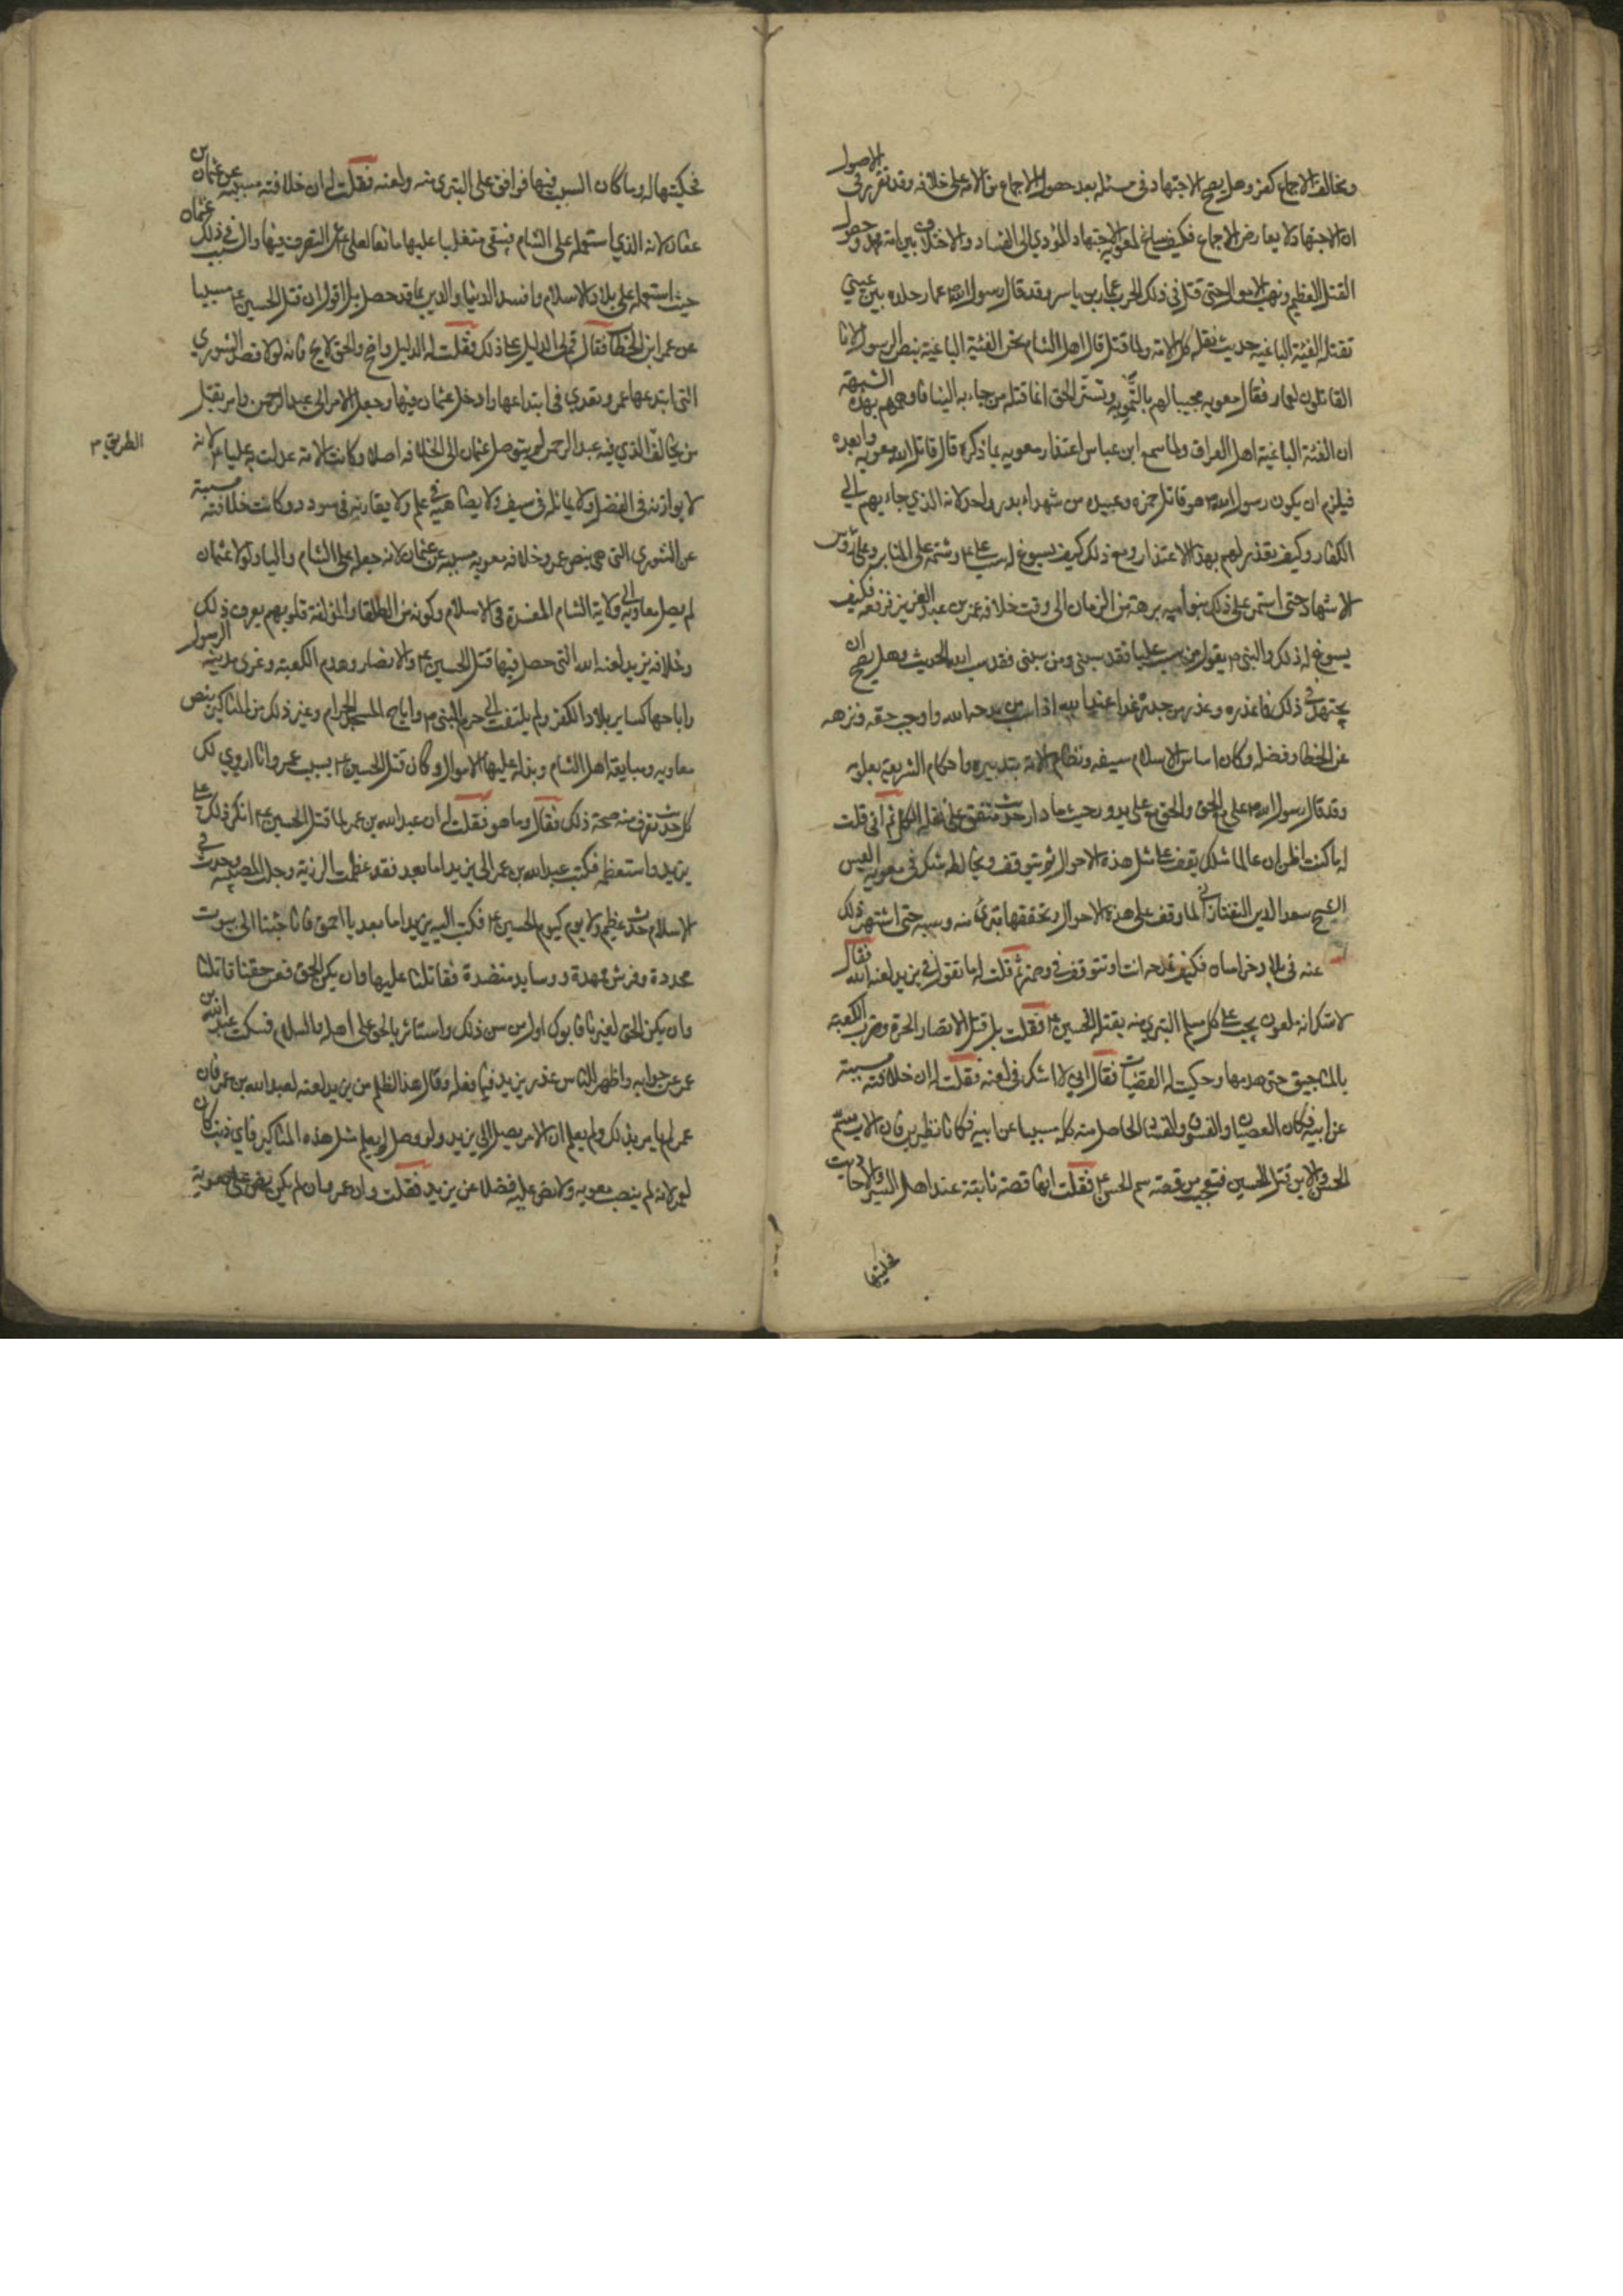 ومخالف الاجماع كفر وهل يصح الاجتهاد في مسئلة بعد حصول الاجماع من الامة على خلافه وقد تقرر في الاصول
ان الاجتهاد لا يعارض الاجماع فكيف ساغ لمعويه الاجتهاد المؤدي الى الفساد والاختلاف بين امة محمد وحصول
القتل العظيم ونهب الاموال حتى قتل في ذلك الحرب عمار بن ياسر وقد قال رسول الله ص عمار جلدة بين عيني
تقتله الفئية الباغية حديث نقله كل الامة ولما قتل قال اهل الشام نحن الفئية الباغية بنص الرسول لانا
القاتلون لعمار فقال معويه مجيبا لهم بالتمويه وتستر الحق انما قتله من جاء به الينا فاوهمهم بهذه الشبهة
ان الفئة الباغية اهل العراق ولما سمع ابن عباس اعتذار معويه بما ذكره قال قاتل الله معويه وابعده
فيلزم ان يكون رسول الله ص هو قاتل حمزه وعبيده من شهداء بدر واحد لانه الذي جاء بهم الى
الكفار وكيف يقدر لهم بهذا الاعتذار ومع ذلك كيف يسوغ له سب على ع وشتمه على المنابر وعلى رؤس
الاشهاد حتى استمر على ذلك بنو اميه برهة من الزمان الى وقت خلافة عمر بن عبد العزيز فرفعه فكيف
يسوغ له ذلك والنبي ص يقول من سب عليا فقد سبني ومن سبني فقد سب الله الحديث وهل يصح ان
يجتهد في ذلك فاعذره وعذر من جدته غدا عند الله اذا سب من مدحه الله واوجب حقه ونزهه
عن الخطا وفضله وكان اساس الاسلام سيفه ونظام الامة بتدبيره واحكام الشريعة بعلومه
وقد قال رسول الله ص على مع الحق والحق مع على يدور حيث ما دار حديث متفق على نقله الكل ثم انى قلت
له ما كنت اظن ان عالما مثلك يقف على مثل هذه الاحوال ثم يتوقف ويخالطه شك في معويه اليس
الشيخ سعد الدين التفتازاني لما وقف على هذه الاحوال وتحققها تبرئ منه وسبه حتى اشتهر ذلك
عنه في بلاد خراسان فكيف تمدحه انت او تتوقف في ذمه ثم قلت له ما تقول في يزيد لعنه الله فقال
لا شك انه ملعون يجب على كل مسلم التبرى منه بقتله الحسين ع فقلت بل قتل الانصار والحرة وضرب الكعبة
بالمناجيق حتى هدمها وحكيت له القضيات فقال اني لا اشك في لعنه فقلت له ان خلافته مسببة
عن ابيه فكان العصيان والفسوق والفساد الحاصل منه كله مسببا عن ابيه فكانا نظيرين فان الاب سم
الحسن والابن قتل الحسين فتعجب من قصة سم الحسن ع فقلت انها قصة ثابتة عند اهل السير والاحاديث
فحكيتها
فحكيتها له وما كان السبب فيها فوافق على التبرى منه ولعنه فقلت له ان خلافته مسببة عن عثمان بن
عفان لانه الذي استعمله على الشام فبقى متغلبا عليها مانعا لعلى ع عن التصرف فيها وال السبب في ذلك عثمان
حيث استعمله على بلاد الاسلام وافسد الدنيا والدين بما قد حصل بل اقول ان قتل الحسين ع مسببا
عن عمر ابن الخطاب فقال قم لى الدليل على ذلك فقلت له الدليل واضح والحق لايح فانه لولا قصة الشورى
التى ابتدعها عمر وتعدى في ابتداعها وادخل عثمان فيها وجعل الامر الى عبد الرحمن وامر بقتل
من يخالف الذي فيه عبد الرحمن لم يتوصل عثمان الى الخلافه اصلا وكانت الامة عدلت به عليا ع لانه
الطريق ٣
لا يوازنه في الفضل ولا يماثله في سيف ولا يضاهيه في علم ولا يقاربه في سودد وكانت خلافته مسببة
عن الشورى التى هي بنص عمر وخلافة معويه مسببة عن عثمان لانه جعله على الشام واليا ولولا عثمان
لم يصل معاوية الى ولاية الشام المعتبرة في الاسلام وكونه من الطلقا والمؤلفة قلوبهم يعرف ذلك
وخلافه يزيد لعنه الله التى حصل فيها قتل الحسين ع والانصار وهدم الكعبة وغزى مدينة الرسول
واباحها كساير بلاد الكفر ولم يلتفت الى حرم النبى ص واباح المسجد الحرام وغير ذلك من المناكير بنص
معاويه ومبايعة اهل الشام وبذله عليها الاموال وكان قتل الحسين ع بسبب عمر وانا اروي لك
حديث تعرف منه صحة ذلك فقال وما هو فقلت له ان عبد الله بن عمر لما قتل الحسين ع انكر ذلك على
يزيد واستعظمه فكتب عبد الله بن عمر الى يزيد اما بعد فقد عظمت الرزية وجلت المصيبة وحدث في
الاسلام حدث عظيم ولا يوم كيوم الحسين ع فكتب اليه يزيد اما بعد يا احمق فانا جئنا الى بيوت
مجددة وفرش ممهدة ووسايد منضدة فقاتلنا عليها وان يكن الحق فعن حقنا قاتلنا
وان يكن الحق لغيرنا فابوك اول من سن ذلك واستاثر بالحق على اهله والسلام فسكت عبد الله بن
عمر عن جوابه واظهر للناس عذر يزيد فيما فعله وقال هذا الظلم من يزيد لعنه لعبد الله بن عمر فان
عمر لم يامر بذلك ولم يعلم ان الامر يصل الى يزيد ولو وصل لم يعلم مثل هذه المناكير فاي ذنب كان
لعمر لانه لم ينصب معويه ولا نص عليه فضلا عن يزيد فقلت وان عمر وان لم يكن نص على معوية